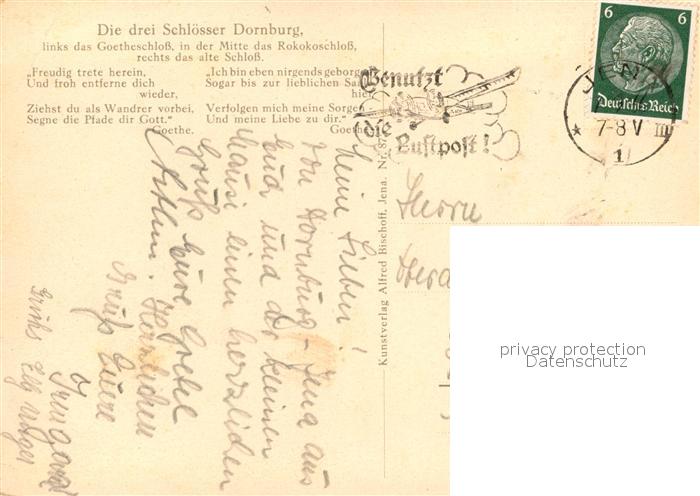 Die drei Schlösser Dornburg,
links das Goetheschloß, in der Mitte das Rokokoschloß,
rechts das alte Schloß.
„Freudig trete herein,
Und froh entferne dich
wieder,
Ziehst du als Wandrer vorbei,
Segne die Pfade dir Gott."
Goethe.
„Ich bin eben nirgends geborgen
Sogar bis zur lieblichen Saale
hier
Verfolgen mich meine Sorgen
Und meine Liebe zu dir."
Goethe
Benutzt
die
Luftpost!
6 6
Deutsches Reich
JENA
7-8 V
1
Kunstverlag Alfred Bischoff, Jena. Nr. 87
Herrn
Meine Lieben!
Von Dornburg-Jena aus
Euch und der kleinen
Mausi einen herzlichen
Gruß Eure
Herzlichen
Gruß Euere
Irmgard
privacy protection
Datenschutz